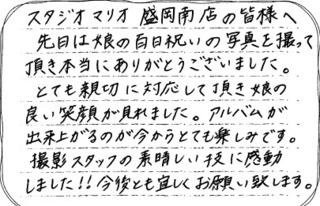 スタジオマリオ 盛岡南店の皆様へ
先日は娘の百日祝いの写真を撮って
頂き本当にありがとうございました。
とても親切に対応して頂き娘の
良い笑顔が見れました。アルバムが
出来上がるのが今からとても楽しみです。
撮影スタッフの素晴しい技に感動
しました!!今後とも宜しくお願い致します。